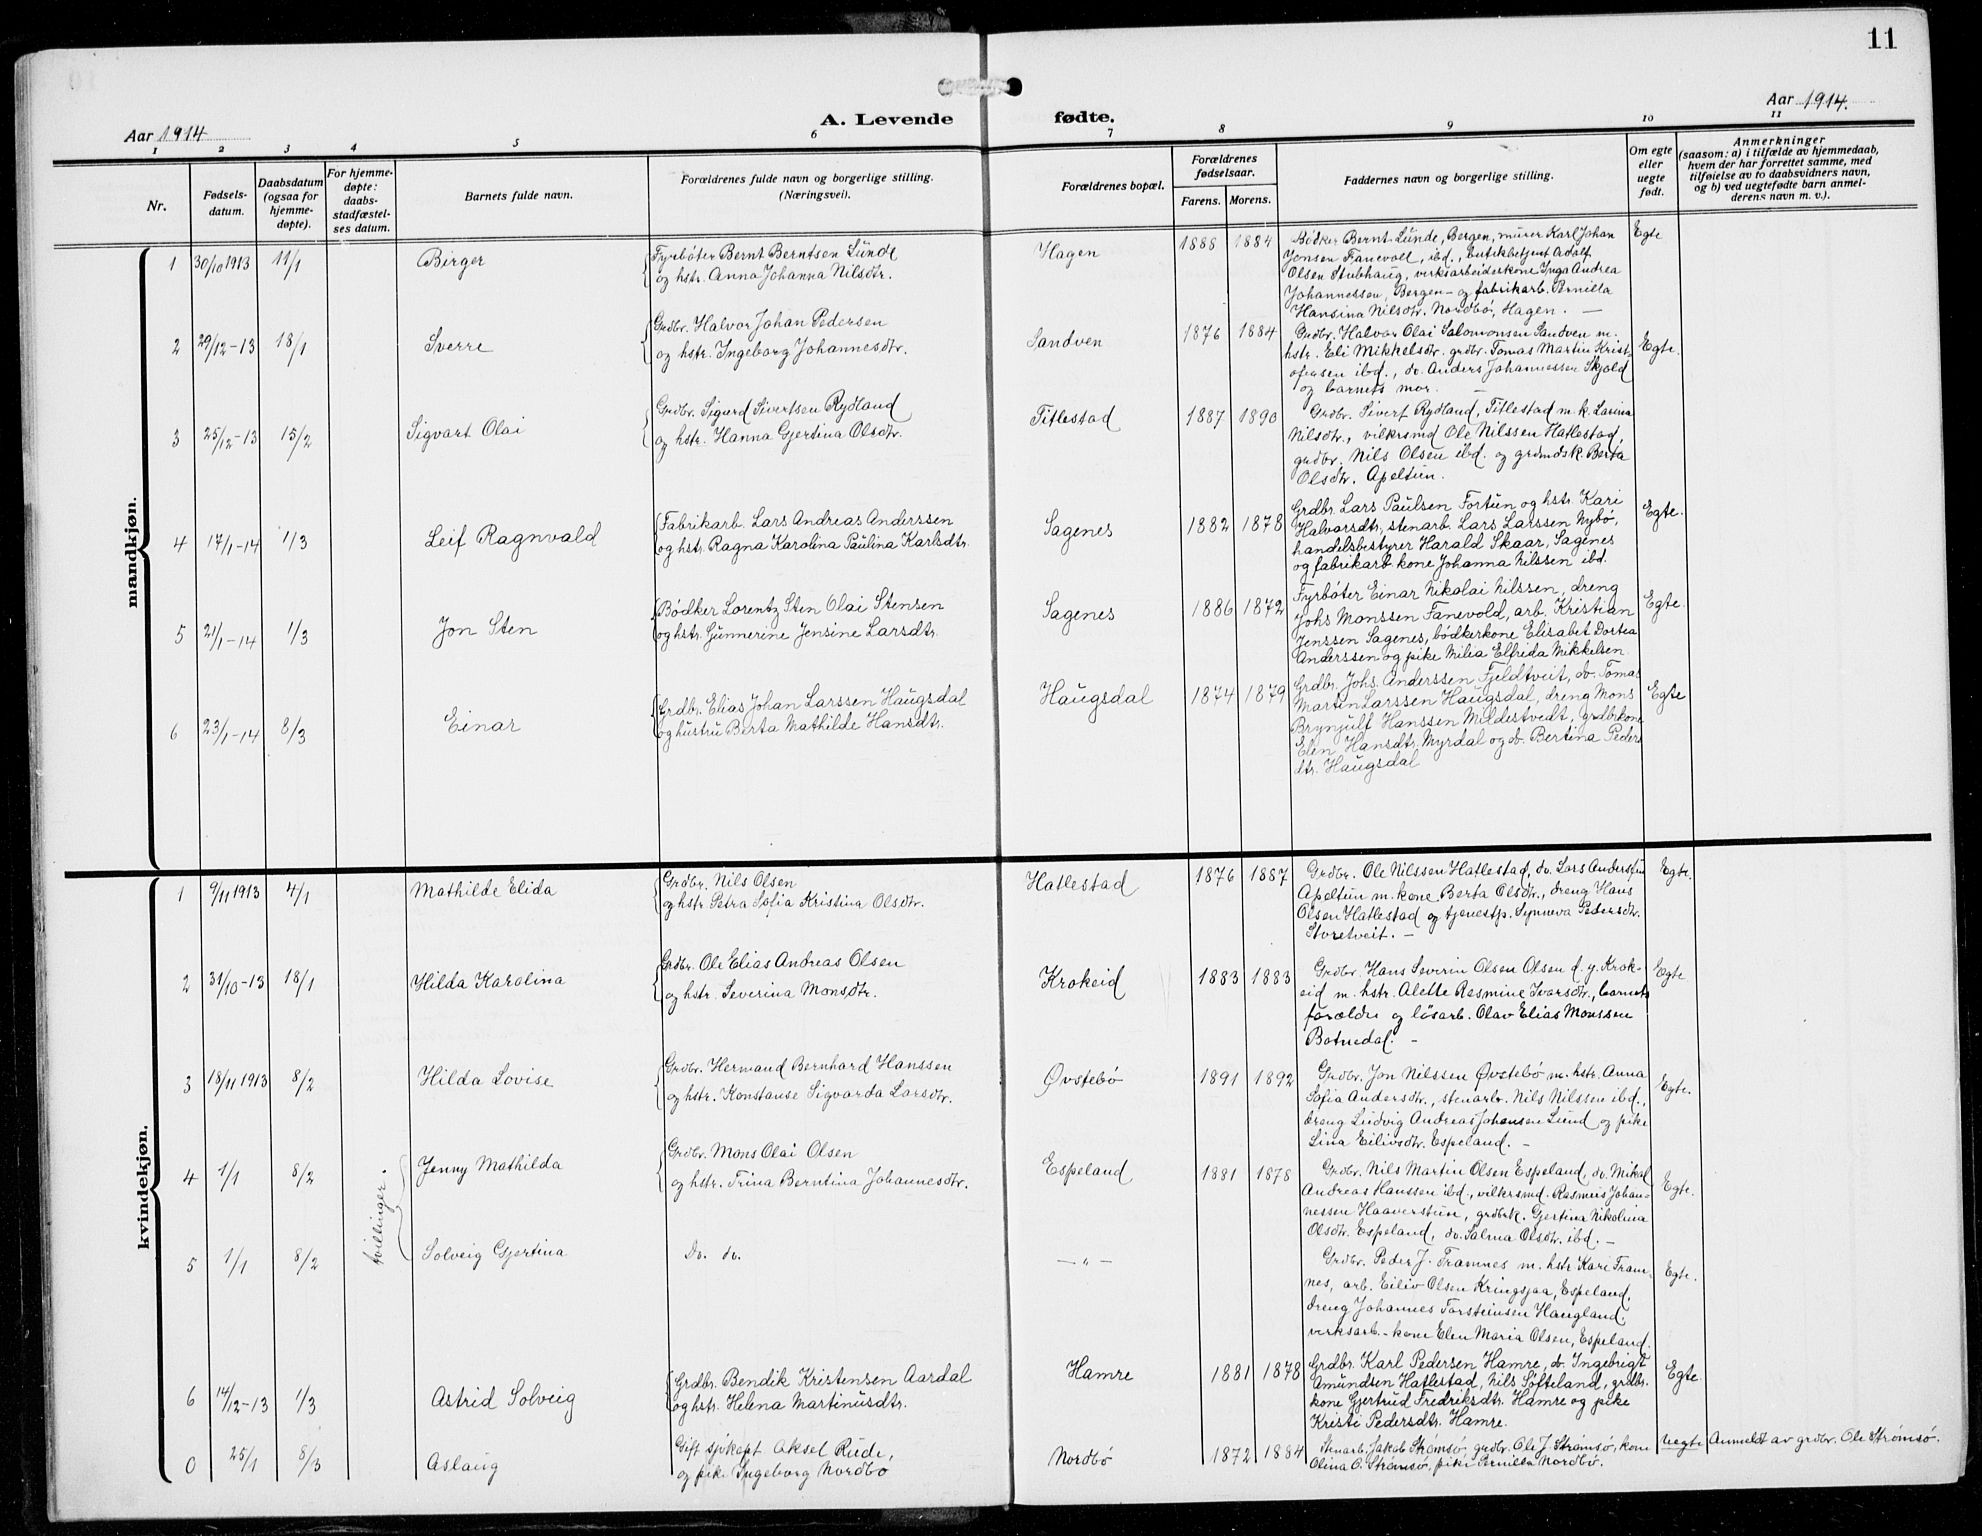 11
Aar 1914
A. Levende fødte.
Aar 1914.
1 2 3 4 5 6 7 8 9 10 11
Nr.
Fødsels-
datum.
Daabsdatum
(ogsaa for
hjemme-
døpte).
For hjemme-
døpte:
daabs-
stadfæstel-
ses datum.
Barnets fulde navn.
Forældrenes fulde navn og borgerlige stilling.
(Næringsvei).
Forældrenes bopæl.
Forældrenes
fødselsaar.
Farens. Morens.
Faddernes navn og borgerlige stilling.
Om egte
eller
uegte
født.
Anmerkninger
(saasom: a) i tilfælde av hjemmedaab,
hvem der har forrettet samme, med
tilføielse av to daabsvidners navn,
og b) ved uegtefødte barn anmel-
derens navn m. v.).
mandkjøn.
1 30/10 1913 11/1 Birger
Fyrbøter Bernt Berntsen Lunde
og hstr. Anna Johanna Nilsdtr.
Hagen 1888 1884
Bødker Bernt Lunde, Bergen, murer Karl Johan
Jonsen Fanevoll, ibd., butikbetjent Adolf
Olsen Stubhaug, verksarbeiderkone Inga Andrea
Johannessen, Bergen – og fabrikarb. Pernilla
Hansina Nilsdtr. Nordbø, Hagen. —
Egte
2 29/12-13 18/1 Sverre
Grdbr. Halvor Johan Pedersen
og hstr. Ingeborg Johannesdtr.
Sandven 1876 1884
Grdbr. Halvor Olai Salomonsen Sandven m.
hstr. Eli Mikkelsdtr. grdbr. Tomas Martin Krist-
ofersen ibd., do. Anders Johannessen Skjold
og barnets mor. —
Egte.
3 25/12-13 15/2 Sigvart Olai
Grdbr. Sigurd Sivertsen Rydland
og hstr. Hanna Gjertina Olsdtr.
Titlestad 1887 1890
Grdbr. Sivert Rydland, Titlestad m. k. Lasina
Nilsdtr., vilkrsmd Ole Nilssen Hatlestad,
grdbr. Nils Olsen ibd. og grdmdsk. Berta
Olsdtr. Apeltun.
4 17/1-14 1/3 Leif Ragnvald
Fabrikarb. Lars Andreas Anderssen
og hstr. Ragna Karolina Paulina Karlsdtr.
Sagenes 1882 1878
Grdbr. Lars Paulsen Fortun og hstr. Kari
Halvorsdtr, stenarb. Lars Larssen Nybø,
handelsbestyrer Harald Skaar, Sagenes
og fabrikarb. kone Johanna Nilssen ibd.
Egte.
5 21/1-14 1/3 Jon Sten
Bødker Lorentz Sten Olai Stensen
og hstr. Gunnerine Jensine Larsdtr.
Sagenes 1886 1872
Fyrbøter Einar Nikolai Nilssen, dreng
Johs Monssen Fanevold, arb. Kristian
Jenssen Sagenes, bødkerkone Elisabet Dortea
Anderssen og pike Milia Elfrida Mikkelsen.
Egte.
6 23/1-14 8/3 Einar
Grdbr. Elias Johan Larssen Haugsdal
og hustru Berta Mathilde Hansdtr.
Haugsdal 1874 1879
Grdbr. Johs. Anderssen Fjeldtveit, do. Tomas
Martin Larssen Haugsdal, dreng Mons
Brynjulf Hanssen Mildestvedt, grdbrkone
Elen Hansdtr. Myrdal og do. Bertina Peders
dtr. Haugsdal
Egte
kvindekjøn.
1 9/11 1913 4/1 Mathilde Elida
Grdbr. Nils Olsen
og hstr. Petra Sofia Kristina Olsdtr.
Hatlestad 1876 1887
Grdbr. Ole Nilssen Hatlestad, do. Lars Anderssen
Apeltun m. kone Berta Olsdtr., dreng Hans
Olsen Hatlestad og tjenestp. Synneva Pedersdtr.
Storetveit. —
Egte.
2 31/10-13 18/1 Hilda Karolina
Grdbr. Ole Elias Andreas Olsen
og hstr. Severina Monsdtr.
Krokeid 1883 1883
Grdbr. Hans Severin Olsen Olsen d. y. Krok-
eid m. hstr. Alette Rasmine Ivarsdtr., barnets
forældre og løsarb. Olav Elias Monssen
Botnedal. —
Egte
3 18/11 1913 8/2 Hilda Lovise
Grdbr. Hermand Bernhard Hanssen
og hstr. Konstanse Sigvarda Larsdtr.
Øvstebø 1891 1892
Grdbr. Jon Nilssen Øvstebø m. hstr. Anna
Sofia Andersdtr., stenarb. Nils Nilssen ibd.,
dreng Ludvig Andreas Johansen Lund og pike
Lina Eilivsdtr. Espeland. —
Egte.
tvillinger.
4 1/1 8/2 Jenny Mathilda
Grdbr. Mons Olai Olsen
og hstr. Trina Berntina Johannesdtr.
Espeland 1881 1878
Grdbr. Nils Martin Olsen Espeland, do. Mikal
Andreas Hanssen ibd., vilkrsmd. Rasmus Johan-
nessen Haaverstun, grdbrk. Gjertina Nikolina
Olsdtr. Espeland, do. Salma Olsdtr. ibd. —
Egte.
5 1/1 8/2 Solveig Gjertina
Do. do.
— „ —
Grdbr. Peder J. Framnes m. hstr Kari Fram-
nes, arb. Eiliv Olsen Kringsjaa, Espeland,
dreng Johannes Torsteinsen Haugland,
verksarb.-kone Elen Maria Olsen, Espeland.
Egte.
6 14/12-13 1/3 Astrid Solveig
Grdbr. Bendik Kristensen Aardal
og hstr. Helena Martinusdtr.
Hamre 1881 1878
Grdbr. Karl Pedersen Hamre, do. Ingebrigt
Amundsen Hatlestad, Nils Søfteland, grdbr.
kone Gjertrud Fredriksdtr. Hamre og pike
Kristi Pedersdtr. Hamre.
Egte.
0 25/1 8/3 Aslaug
Gift sjøkapt Aksel Rude,
og pike Ingeborg Nordbø
Nordbø 1872 1884
Stenarb. Jakob Strømsø, grdbr. Ole J. Strømsø, kone
Olina O. Strømsø, pike Pernilla Nordbø.
Uegte Anmeldt av grdbr. Ole Strømsø.